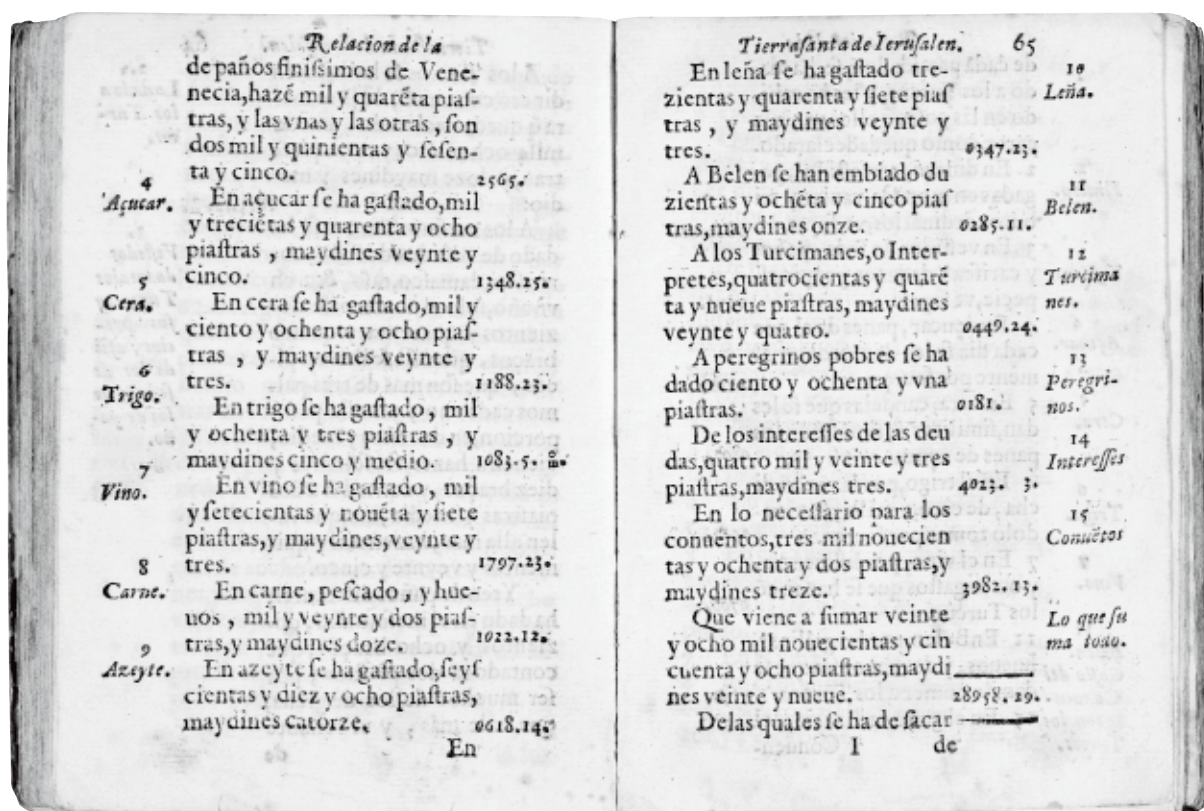 Relacion de la
de paños finissimos de Vene-
necia, hazē mil y quarēta pias-
tras, y las vnas y las otras, son
dos mil y quinientas y sesen-
ta y cinco. 2565.
4
Açucar.
En açucar se ha gastado, mil
y treciētas y quarenta y ocho
piastras , maydines veynte y
cinco. 1348.25.
5
Cera.
En cera se ha gastado, mil y
ciento y ochenta y ocho pias-
tras , y maydines veynte y
tres. 1188.23.
6
Trigo.
En trigo se ha gastado , mil
y ochenta y tres piastras , y
maydines cinco y medio. 1083.5.
7
Vino.
En vino se ha gastado , mil
y setecientas y nouēta y siete
piastras, y maydines, veynte y
tres. 1797.23.
8
Carne.
En carne, pescado , y hue-
uos , mil y veynte y dos pias-
tras, y maydines doze. 1022.12.
9
Azeyte.
En azeyte se ha gastado, seys
cientas y diez y ocho piastras,
maydines catorze. 0618.14.
En
Tierra santa de Ierusalen. 65
En leña se ha gastado tre-
zientas y quarenta y siete pias
tras , y maydines veynte y
tres. 0347.23.
10
Leña.
A Belen se han embiado du
zientas y ochēta y cinco pias
tras, maydines onze. 0285.11.
11
Belen.
A los Turcimanes, o Inter-
pretes, quatrocientas y quarē
ta y nueue piastras, maydines
veynte y quatro. 0449.24.
12
Turcima
nes.
A peregrinos pobres se ha
dado ciento y ochenta y vna
piastras. 0181.
13
Peregri-
nos.
De los interesses de las deu
das, quatro mil y veinte y tres
piastras, maydines tres. 4023. 3.
14
Interesses
En lo necessario para los
conuentos, tres mil nouecien
tas y ochenta y dos piastras, y
maydines treze. 3982.13.
15
Conuētos
Que viene a sumar veinte
y ocho mil nouecientas y cin
cuenta y ocho piastras, maydi
nes veinte y nueue. 28958.29.
Lo que su
ma todo.
Delas quales se ha de sacar
I de